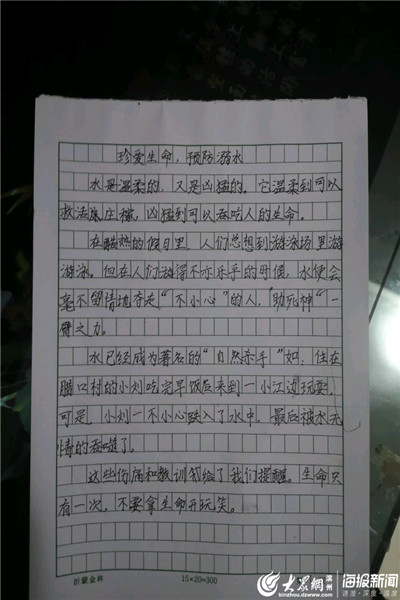 珍爱生命，预防溺水
水是温柔的，又是凶猛的。它温柔到可以
救活庄稼，凶猛到可以吞吃人的生命。
在酷热的假日里，人们总想到游泳场里游
游泳。但在人们游得不亦乐乎的时候，水便会
毫不留情地夺走“不小心”的人，“助死神”一
臂之力。
水已经成为著名的“自然杀手”如，住在
腊口村的小刘吃完早饭后来到一小江边玩耍，
可是，小刘一不小心跌入了水中，最后被水无
情的吞噬了。
这些伤痛和教训给了我们提醒。生命只
有一次，不要拿生命开玩笑。
沂蒙金林
15×20=300
大众网 滨州
binzhou.dzwww.com
海报新闻
速度·深度·温度